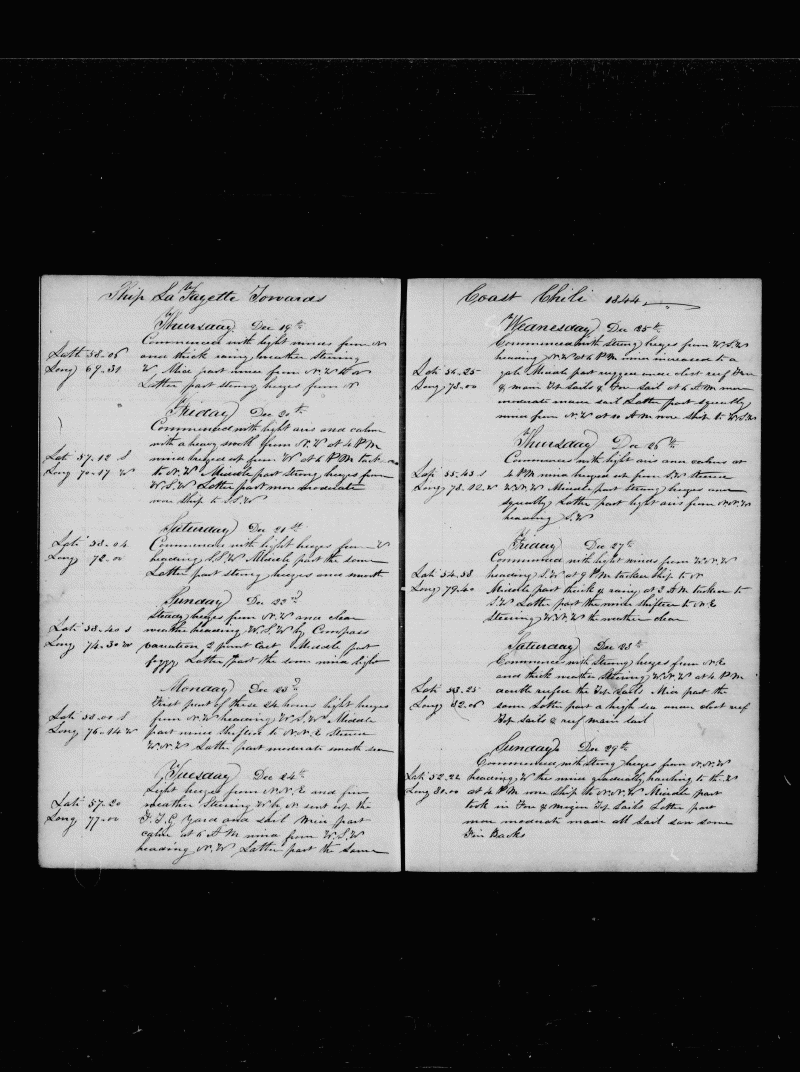 Ship La Fayette Towards
Thursday Dec 19th
Commenced with light winds from N
Latt 58.06 and thick rainy weather Steering
Long 69.31 W, Mid part wind from N.W to N
Latter part strong breezes from N
Friday Dec 20th
Commenced with light airs and calm
with a heavy swell from N.W at 4 PM
Lati 57.12 S wind breezed up from W at 6 PM tack
Long 70.17 W to N.W Middle part Strong breezes from
W.S.W Latter part more moderate
wore Ship to S.S.W
Saturday Dec 21st
Lati 58.04 Commenced with light breezes from W
Long 72.00 heading S.S.W Middle part the same
Latter part strong breezes and
Sunday Dec 22d
Steady breezes from N.W and clear
Lati 58.40 S weather heading W.S.W by Compass
Long 74.30 W variation 2 point East Middle part
foggy Latter part the same wind light
Monday Dec 23d
First part of these 24 hours light breezes
Lati 58.00 S from N.W heading W.S.W Middle
Long 76.14 W part wind shifted to N.N.E Steered
W.N.W Latter part moderate smooth sea
Tuesday Dec 24th
Light breezes from N.N.E and fine
Lati 57.20 weather Steering W by N sent up the
Long 77.00 F.T.G Yard and sail Mid part
calm at 6 AM wind from W.S.W
heading N.W Latter part the same
Coast Chili 1844
Wednesday Dec 25th
Commenced with Strong breezes from W.S.W
heading N.W at 6 PM wind increased to a
Lati 56.25 gale Middle part rugged under close reef Fore
Long 78.00 & main Top Sails & Fore Sail at 6 AM more
moderate made sail Latter part squally
wind from N.W at 10 AM wore Ship to W.S.W
Thursday Dec 26th
Commenced with light airs and calms at
Lati 55.43 S 4 PM wind breezed up from S.W Steered
Long 78.12 W W.N.W Middle part Strong breezes and
squally Latter part light airs from N.N.W
heading S.W
Friday Dec 27th
Commenced with light winds from W.N.W
Lati 54.38 heading S.W at 9 PM tacked Ship to N
Long 79.40 Middle part thick & rainy at 3 AM tacked to
S.W Latter part the wind shifted to N.E
Steering W.N.W the weather clear
Saturday Dec 28th
Commenced with Strong breezes from N.E
and thick weather Steering W.N.W at 4 PM
Lati 53.25 double reefed the Top Sails Mid part the
Long 82.06 same Latter part a high sea under close reef
Top Sails & reef main sail
Sunday Dec 29th
Commenced with Strong breezes from N.N.W
Lati 52.22 heading W the wind gradually hauling to the W
Long 80.00 at 4 PM wore Ship to N.N.W Middle part
took in Fore & Mizen Top Sails Latter part
more moderate made all sail saw some
Fin Backs